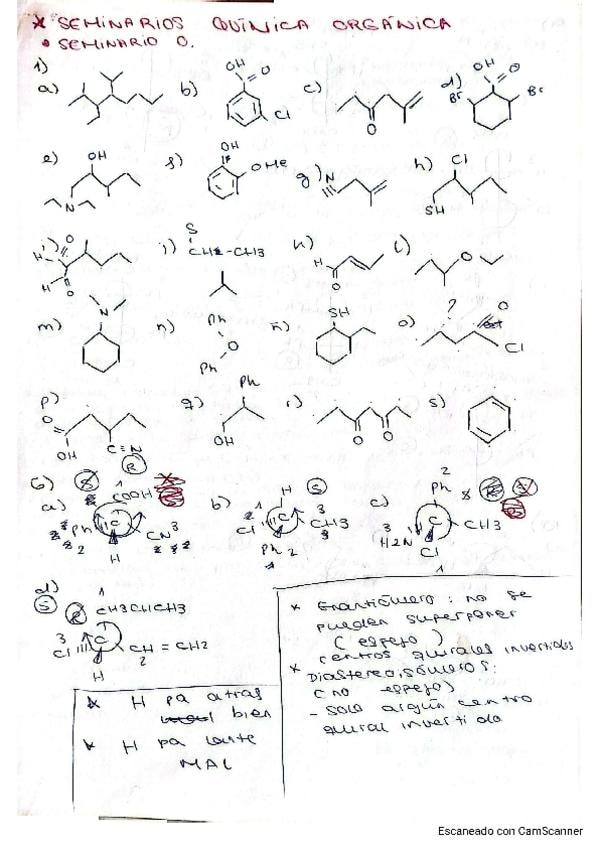 * SEMINARIOS QUÍMICA ORGÁNICA
• SEMINARIO 0.
1)
a) b) OH O Cl c) O d) OH O Br Br
e) OH N f) OH OMe g) N h) Cl SH
i) O H H O j) S CH2-CH3 k) H O l) O
m) N n) Ph O Ph ñ) SH o) ? O Cl
p) O OH C≡N q) Ph OH r) O O s)
6) a) 1 COOH Ph 2 C CN 3 H R
b) H S 1 Cl C CH3 3 Ph 2
c) 2 Ph C CH3 3 H2N Cl 1
d) S R 1 CH3CHCH3 3 Cl C CH = CH2 2 H
* H pa atras
bien
* H pa lante
MAL
* Enantiómero: no se
pueden superponer
(espejo)
centros quirales invertidos
* Diastereoisómeros:
(no espejo)
- Solo algún centro
quiral invertido
Escaneado con CamScanner